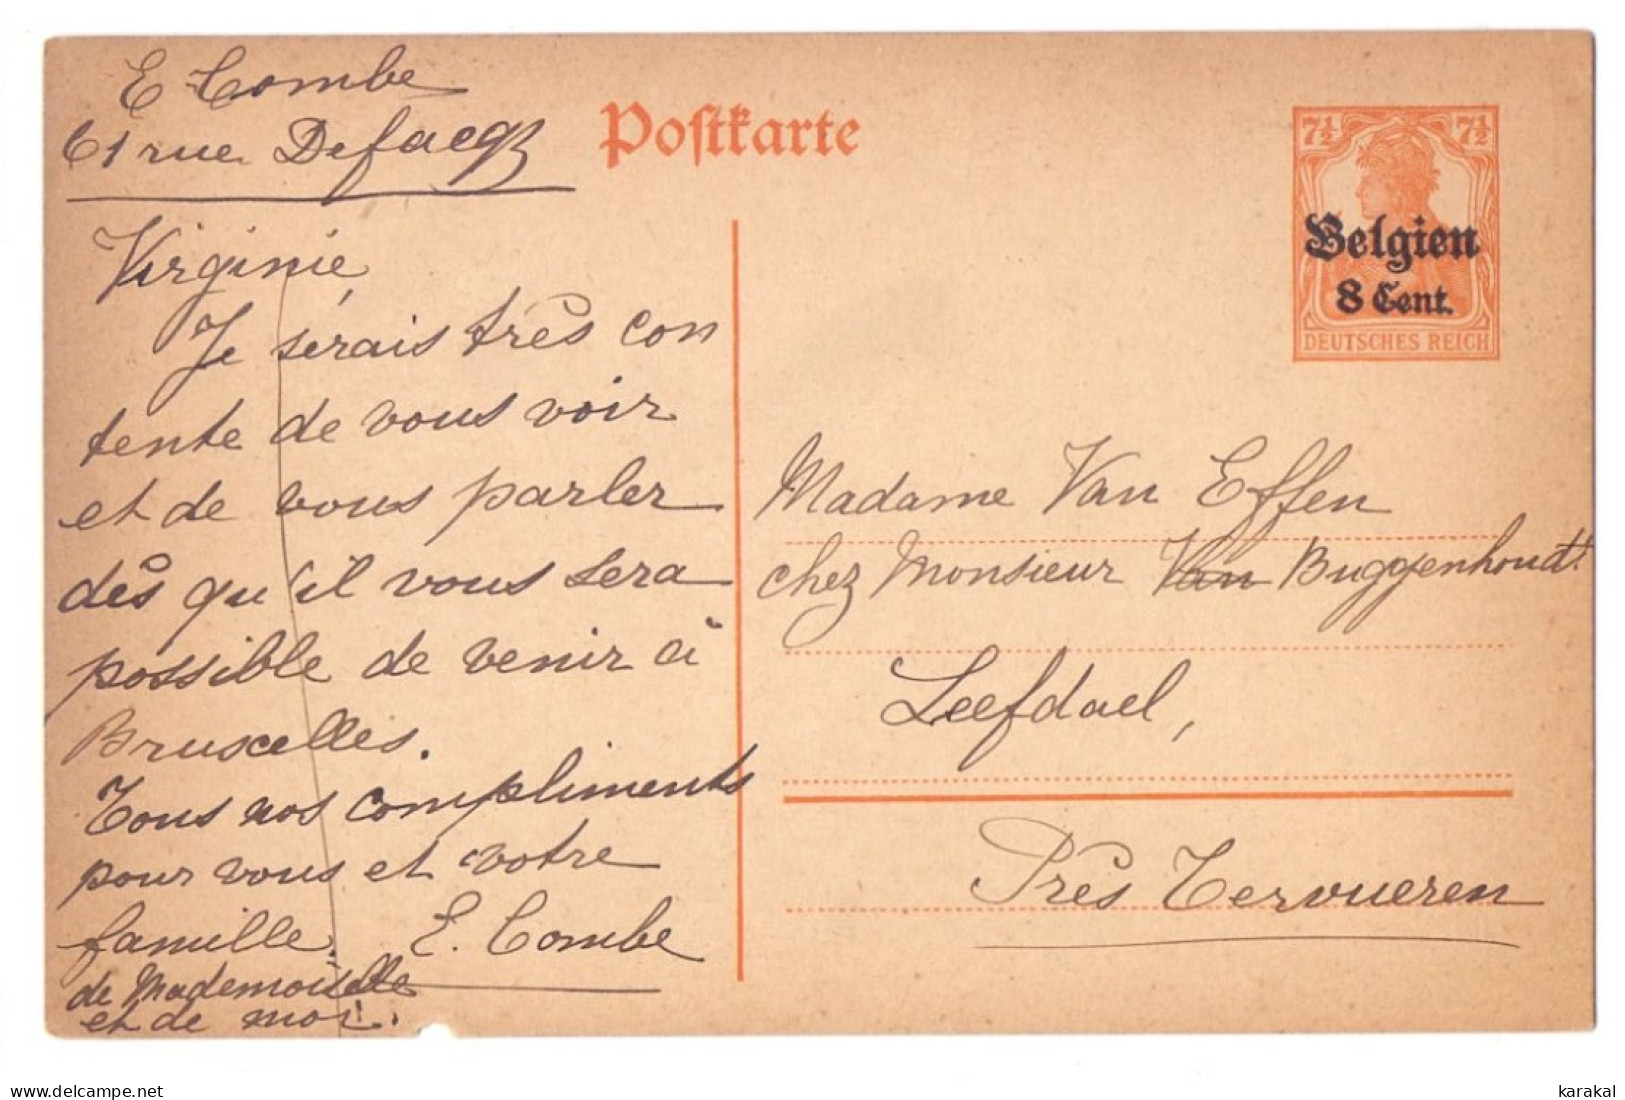 E Combe
61 rue Defacqz
Postkarte
7½ 7½
Belgien
8 Cent.
DEUTSCHES REICH
Virginie,
Je serais très con
tente de vous voir
et de vous parler
dès qu'il vous sera
possible de venir à
Bruxelles.
Tous nos compliments
pour vous et votre
famille. E. Combe
de Mademoiselle
et de moi!.
Madame Van Effen
chez Monsieur Van Buggenhoudt.
Leefdael,
Près Tervueren
karakal